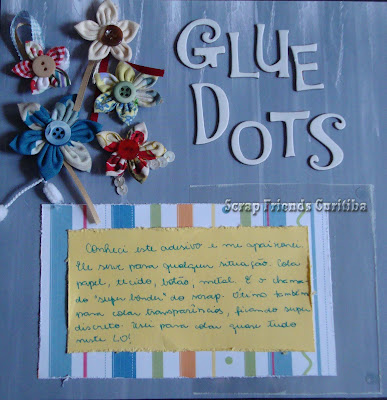 GLUE
DOTS
Scrap Friends Curitiba
Conheci este adesivo e me apaixonei.
Ele serve para qualquer situação. Cola
papel, tecido, botão, metal. É o chama
do "super bonder" do scrap. Ótimo também
para colar transparências, ficando super
discreto. Usei para colar quase tudo
neste LO!